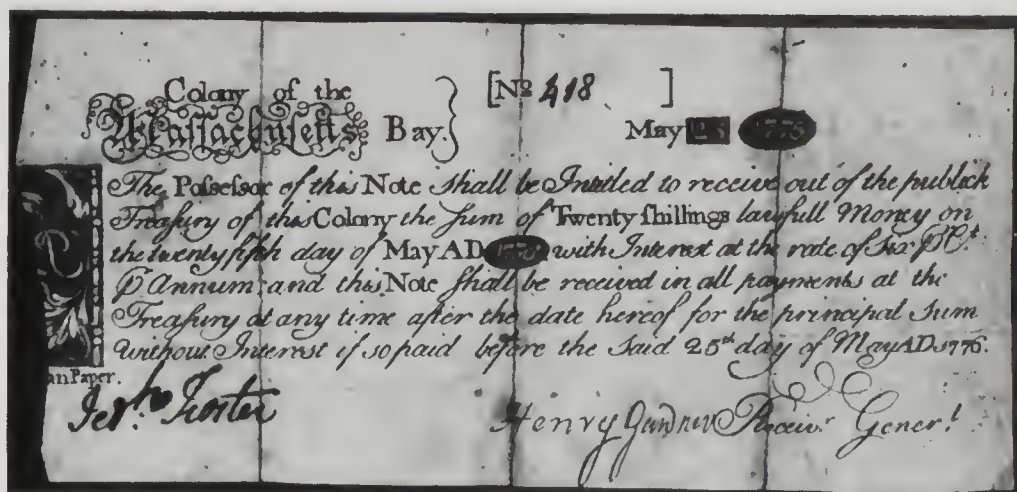 Colony of the [Nº 418 ]
Maſſachuſetts Bay.} May 25 1775
The Poſseſsor of this Note ſhall be Intitled to receive out of the publick
Treaſury of this Colony the ſum of Twenty ſhillings lawfull Money on
the twenty fifth day of May AD with Intereſt at the rate of Six ⅌ Ct.
⅌ Annum and this Note ſhall be received in all payments at the
Treaſury at any time after the date hereof for the principal Sum
without Intereſt if so paid before the Said 25th day of May AD 1776.
an Paper.
Foster
Henry Gardner Receivr. Generl.